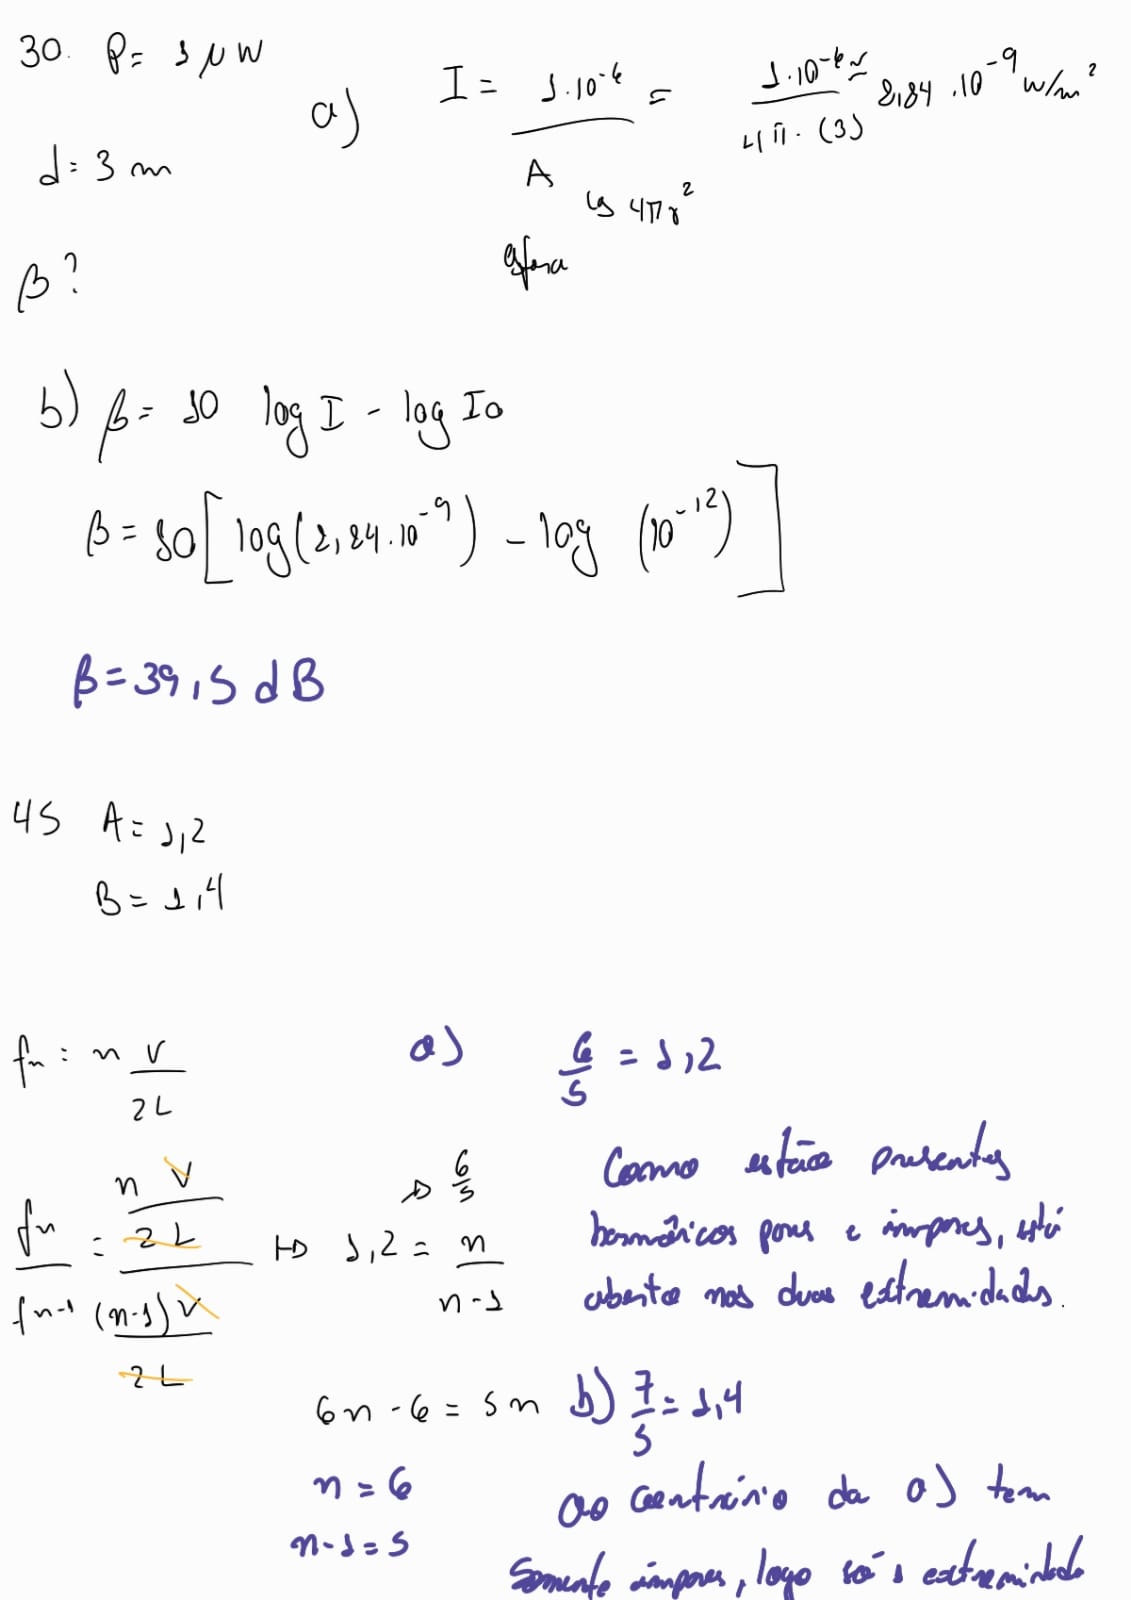 30. P= 1 μW
d= 3 m
β?
a) I = 1.10⁻⁶ / A = 1.10⁻⁶ / 4π.(3) ≃ 8,84 .10⁻⁹ W/m²
↳ 4πr²
esfera
b) β= 10 log I - log Io
β= 10[log(8,84.10⁻⁹) - log (10⁻¹²)]
β=39,5 dB
45 A= 1,2
B= 1,4
fn = n V / 2L
fn / fn-1 = (n V / 2L) / ((n-1) V / 2L) ↦ 1,2 = n / n-1
→ 6/5
6n - 6 = 5n
n = 6
n-1 = 5
a) 6/5 = 1,2
Como estão presentes
harmônicos pares e impares, está
aberto nas duas extremidades.
b) 7/5 = 1,4
ao contrário da a) tem
Somente impares, logo só 1 extremidade